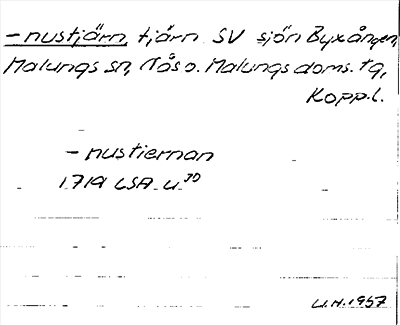 -nustjärn, tjärn SV sjön Byxången,
Malungs sn, Nås o. Malungs doms. tg,
Kopp. l.
- nustiernan
1719 LSA U 30
U.H. 1957